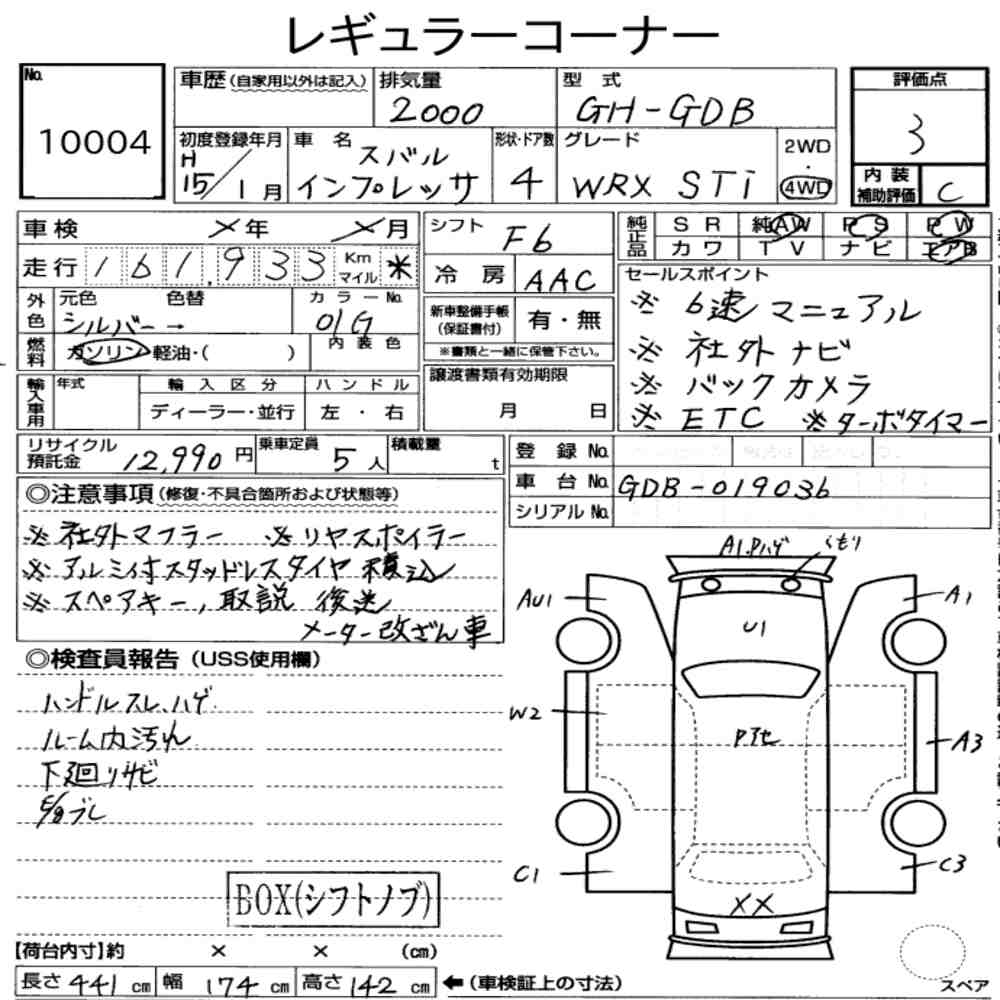 レギュラーコーナー
No. 10004
車歴(自家用以外は記入) 排気量 2000 型式 GH-GDB
評価点 3
初度登録年月 H15/1月 車名 スバル インプレッサ 形状・ドア数 4 グレード WRX STi 2WD・4WD
内装補助評価 C
車検 ×年 ×月
走行 161,933 Km マイル *
シフト F6
冷房 AAC
純正品 SR 純AW PS PW
カワ TV ナビ エアB
外色 元色 色替 シルバー→ カラーNo. 01G
燃料 ガソリン・軽油・( ) 内装色
新車整備手帳(保証書付) 有・無
※書類と一緒に保管下さい。
セールスポイント
※ 6速マニュアル
※ 社外ナビ
※ バックカメラ
※ ETC ※ターボタイマー
輸入車用 年式 輸入区分 ハンドル
ディーラー・並行 左・右
譲渡書類有効期限
月 日
リサイクル預託金 12,990円 乗車定員 5人 積載量 t
登録No.
車台No. GDB-019036
シリアルNo.
◎注意事項(修復・不具合箇所および状態等)
※ 社外マフラー ※ リヤスポイラー
※ アルミ付スタッドレスタイヤ積込
※ スペアキー,取説 後送
メーター改ざん車
◎検査員報告(USS使用欄)
ハンドルスレ、ハゲ
ルーム内汚れ
下廻りサビ
BOX(シフトノブ)
A1.Pハゲ くもり
AU1 A1
U1
W2 Pアセ A3
C1 C3
XX
【荷台内寸】約 × × (cm)
長さ 441cm 幅 174cm 高さ 142cm ←(車検証上の寸法)
スペア